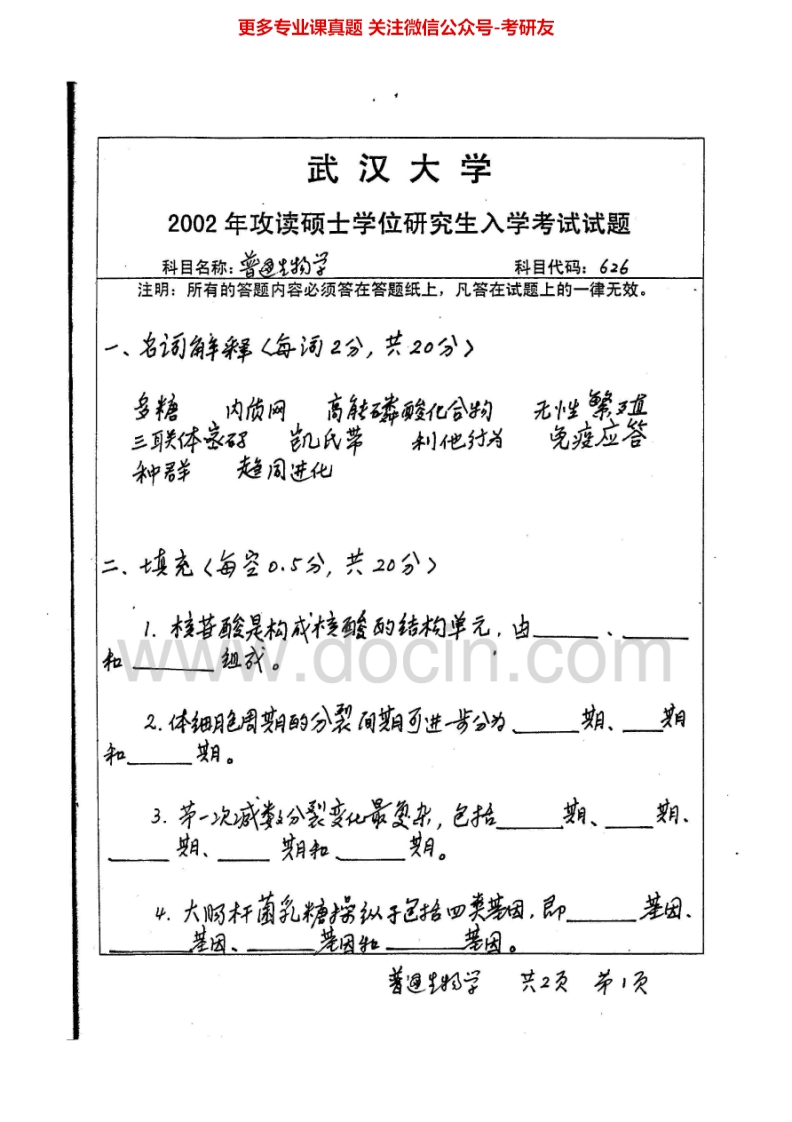 更多专业课真题 关注微信公众号-考研友
武汉大学
2002年攻读硕士学位研究生入学考试试题
科目名称：普通生物学 科目代码：626
注明：所有的答题内容必须答在答题纸上，凡答在试题上的一律无效。
一、名词解释（每词2分，共20分）
多糖 内质网 高能磷酸化合物 无性繁殖
三联体密码 凯氏带 利他行为 免疫应答
种群 趋同进化
二、填充（每空0.5分，共20分）
1. 核苷酸是构成核酸的结构单元，由______、______
和______组成。
www.docin.com
2. 体细胞周期的分裂间期可进一步分为______期、____期
和______期。
3. 第一次减数分裂变化最复杂，包括______期、____期、
______期、______期和______期。
4. 大肠杆菌乳糖操纵子包括四类基因，即______基因、
______基因、______基因和______基因。
普通生物学 共2页 第1页